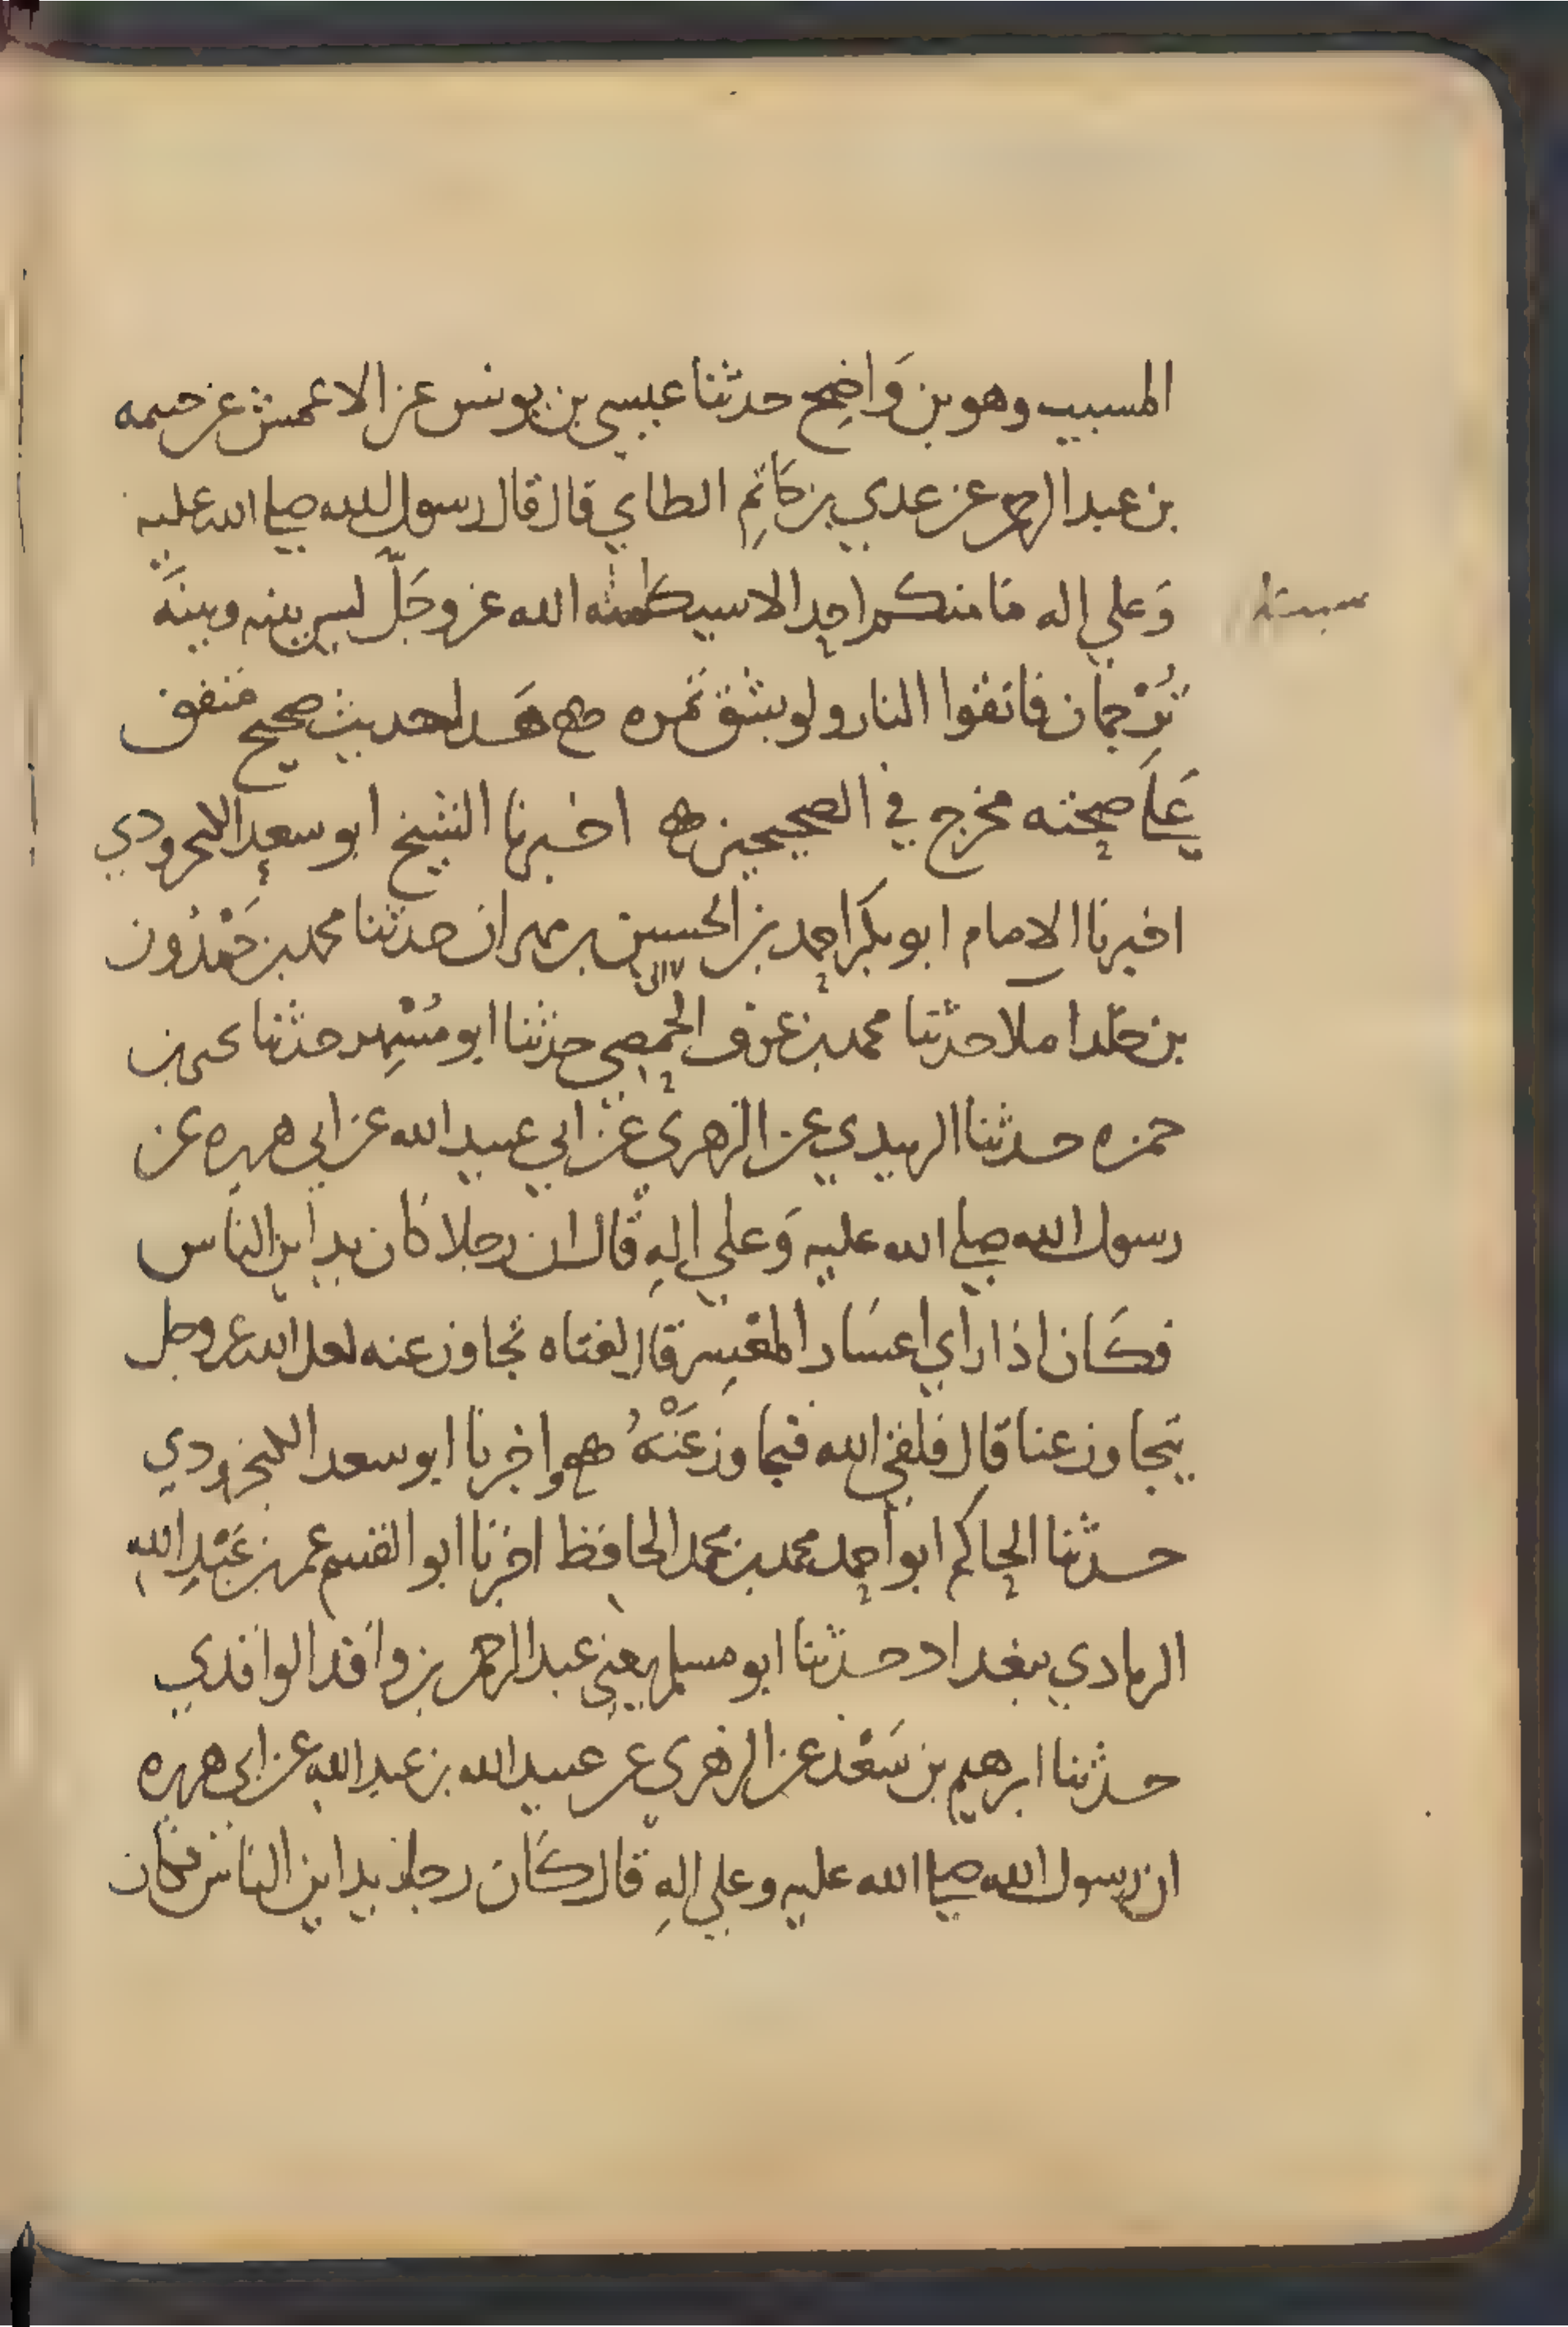 المسيب وهو بن وَاضِح حدثنا عيسي بن يونس عن الاعمش عن خيمه
بن عبد الرحمن عن عدي بن حَاتمِ الطاي قال قال رسول الله صلي الله عليه
وَعلي اله مَا منكم احد الا سيكلمه الله عز وجَلّ ليس بينه وبينَه
تُرْجِمان فاتقوا النار ولو بشق تمره هَذا حديث صحيح متفق
عَلَي صحته مخرج في الصحيحين ه اخبرنا الشيخ ابو سعد الكنجرودي
اخبرنا الامام ابو بكر احمد بن الحسين بن مهران حدثنا محمد بن حَمْدُون
بن خلد املا حدثنا محمد بن عوف الحِمصِي حدثنا ابو مُسْهِر حدثنا يحيي بن
حمزه حدثنا الزبيدي عن الزهري عن ابي عبيد الله عن ابي هريره عن
رسول الله صلي الله عليه وَعلي الهِ قال ان رجلا كان يداين الناس
فكَان اذا راي اعسَار المعْسِر قال لفتاه تجاوز عنه لعل الله عز وجل
يتجاوز عنا قال فلقي الله فتجاوز عَنْهُ ه واخبرنا ابو سعد الكنجرودي
حدثنا الحاكم ابو احمد محمد بن محمد الحافظ اخبرنا ابو القسم عمر بن عَبْدِ اللهِ
الزيادي ببغداد حدثنا ابو مسلم يعني عبد الرحمن بن واقد الواقدي
حدثنا ابرهيم بن سَعْد عن الزهري عن عبيد الله بن عبد الله عن ابي هريره
ان رسول الله صلي الله عليه وعلي الهِ قال كَان رجل يداين الناس فكان